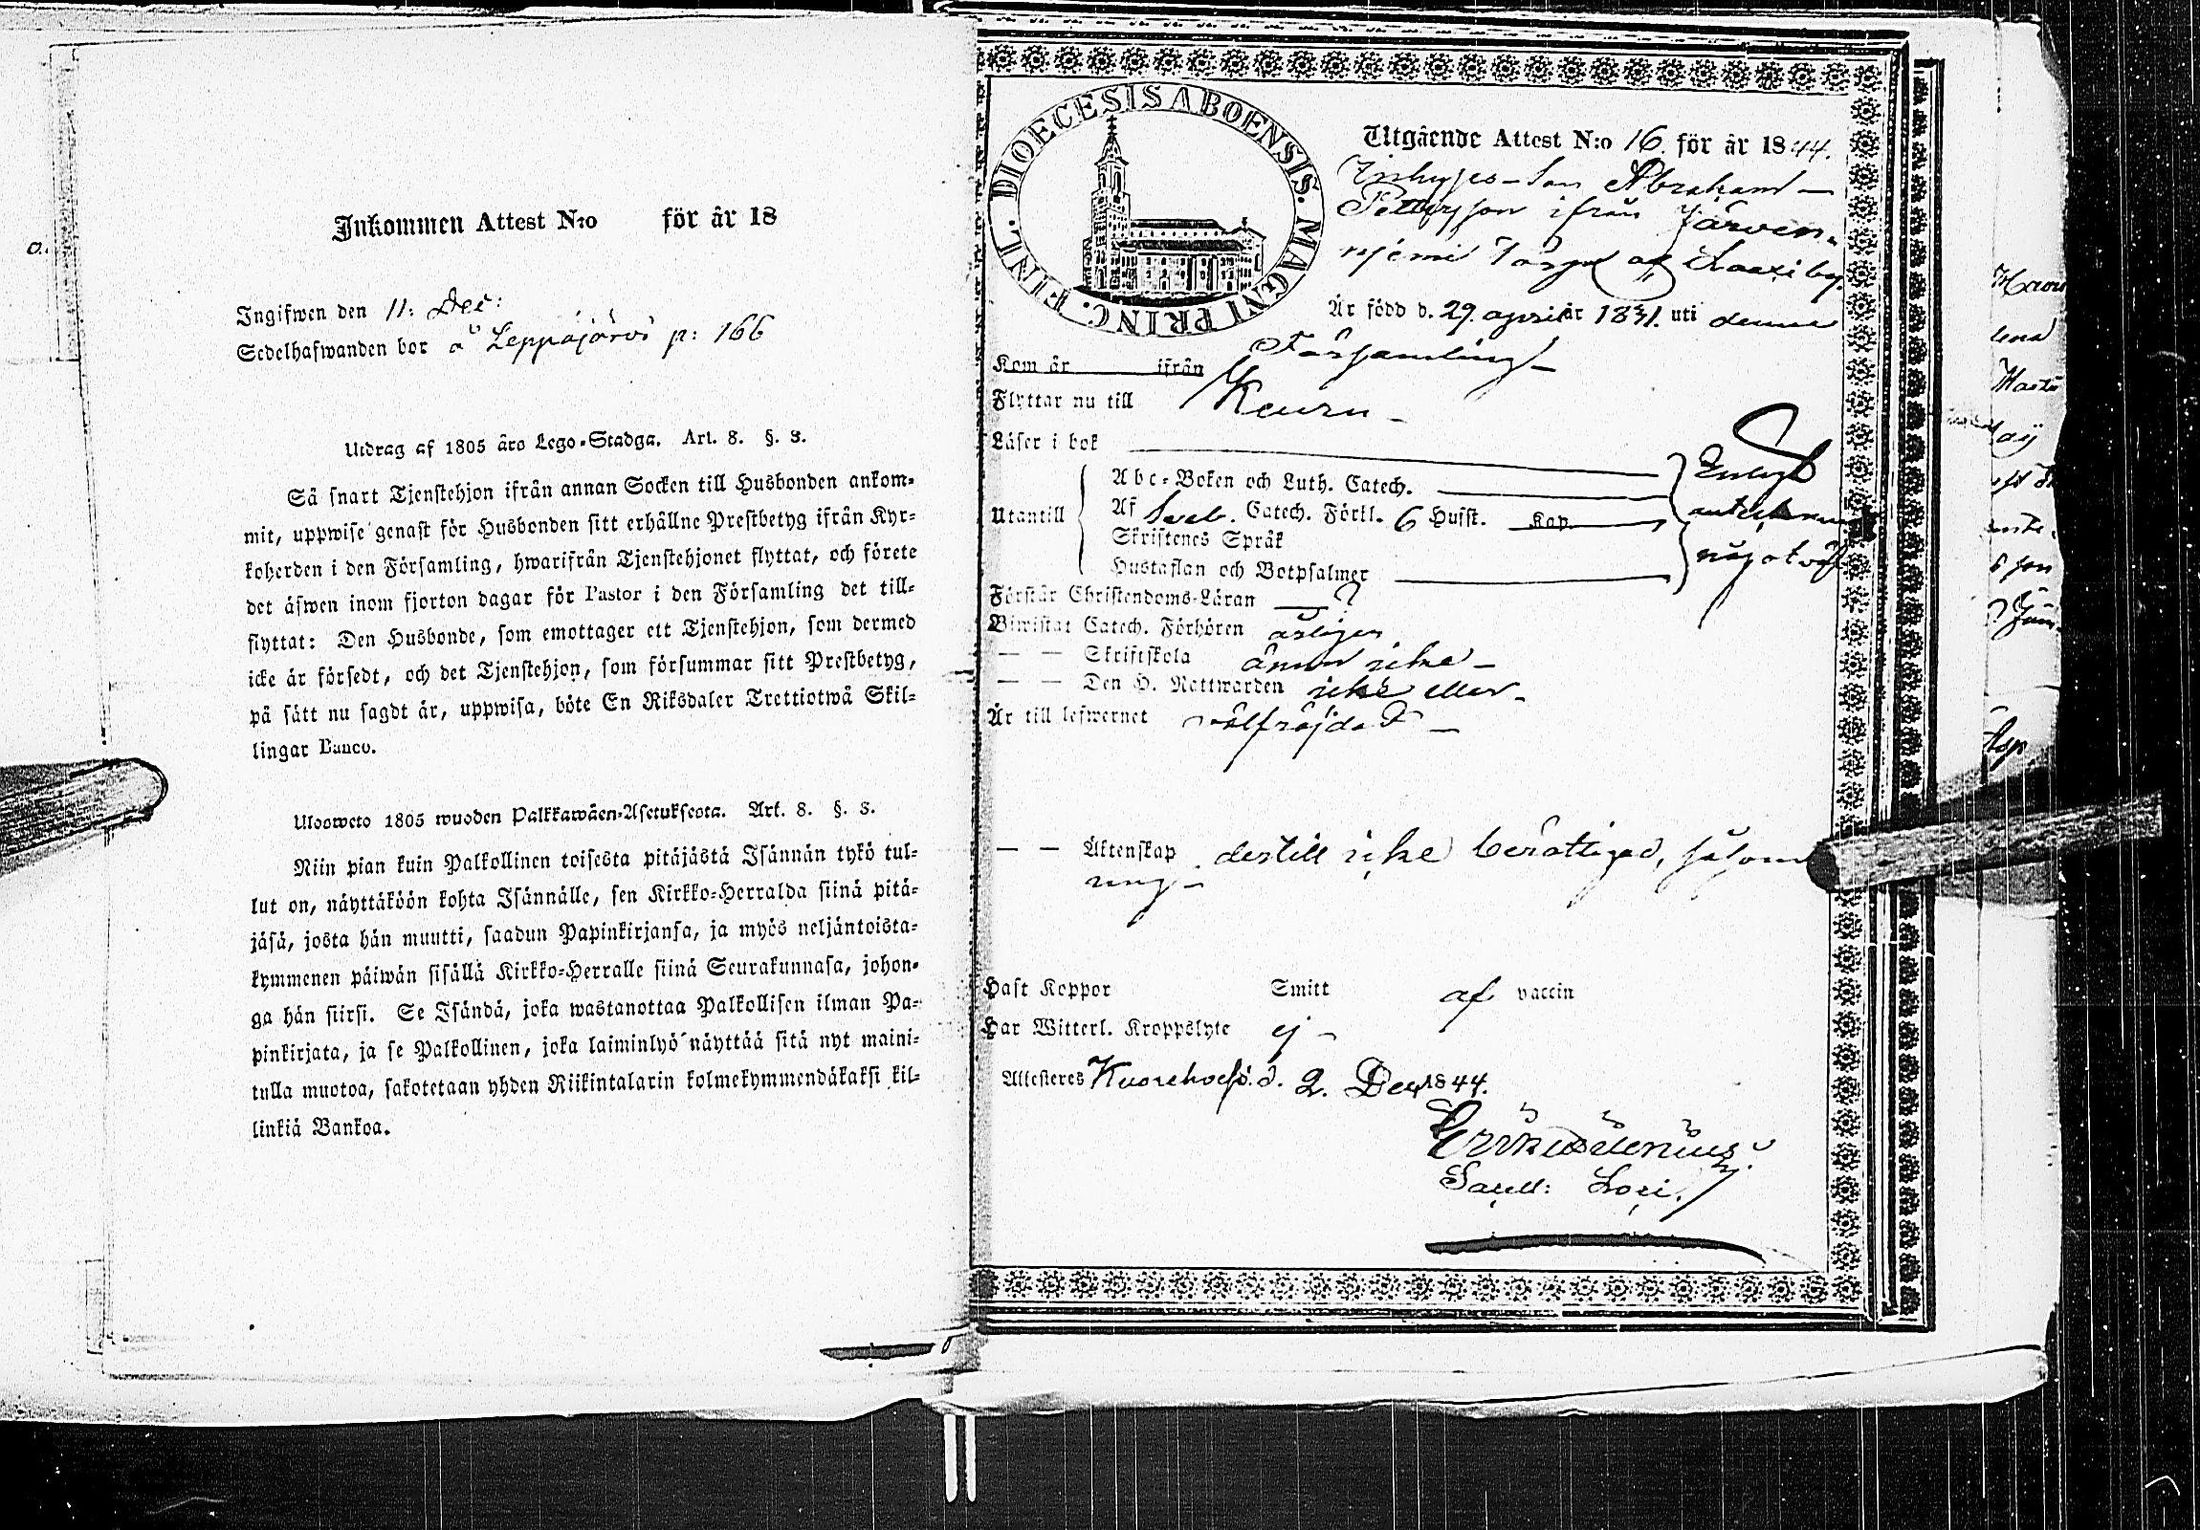 Inkommen Attest N:o för år 18
Ingifwen den 11: Dec:
Sedelhafwanden bor å Leppäjärvi p: 166
Utdrag af 1805 års Lego-Stadga. Art. 8. §. 3.
Så snart Tjenstehjon ifrån annan Socken till Husbonden ankom-
mit, uppwise genast för Husbonden sitt erhållne Prestbetyg ifrån Kyr-
koherden i den Församling, hwarifrån Tjenstehjonet flyttat, och förete
det äfwen inom fjorton dagar för Pastor i den Församling det till-
flyttat: Den Husbonde, som emottager ett Tjenstehjon, som dermed
icke är försedt, och det Tjenstehjon, som försummar sitt Prestbetyg,
på sätt nu sagdt är, uppwisa, böte En Riksdaler Trettiotwå Skil-
lingar Banco.
Ulosweto 1805 wuoden Palkkawäen-Asetuksesta. Art. 8. §. 3.
Niin pian kuin Palkollinen toisesta pitäjästä Isännän tykö tul-
lut on, näyttäköön kohta Isännälle, sen Kirkko-Herralda siinä pitä-
jäsä, josta hän muutti, saadun Papinkirjansa, ja myös neljäntoista-
kymmenen päiwän sisällä Kirkko-Herralle siinä Seurakunnasa, johon-
ga hän siirsi. Se Isändä, joka wastanottaa Palkollisen ilman Pa-
pinkirjata, ja se Palkollinen, joka laiminlyö näyttää sitä nyt maini-
tulla muotoa, sakotetaan yhden Riikintalarin kolmekymmendäkaksi kil-
linkiä Bankoa.
DIOECESIS ABOENSIS. MAGNI PRINC. FINL.
Utgående Attest N:o 16. för år 1844.
Inhyses-Son Abraham
Pettersson ifrån Järven-
niemi Torp af by.
Är född d. 29. april år 1831. uti denna
Församling
Kom år ifrån
Flyttar nu till Keuru
Läser i bok
Utantill
Abc-Boken och Luth. Catech.
Af Sveb. Catech. Förkl. 6 Hufst. Kap.
Skriftenes Språk
Hustaflan och Botpsalmer
Enligt
anteckning
något
Förstår Christendoms-Läran
Biwistat Catech. Förhören årligen
— — Skriftskola ännu icke
— — Den H. Nattwarden icke eller
Är till lefwernet välfräjdad
— — Äktenskap dertill icke berättigad, såsom
ung
Haft Koppor Smitt af vaccin
Har Witterl. Kroppslyte ej
Attesteres Kuorehvesi d. 2. Dec 1844.
Erik